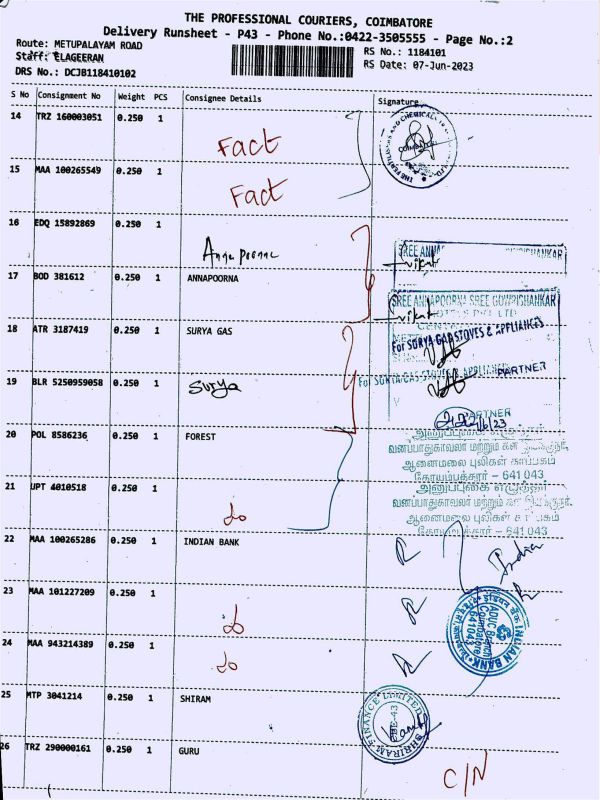 THE PROFESSIONAL COURIERS, COIMBATORE
Delivery Runsheet - P43 - Phone No.:0422-3505555 - Page No.:2
Route: METUPALAYAM ROAD
RS No.: 1184101
Staff: ELAGEERAN
RS Date: 07-Jun-2023
DRS No.: DCJB118410102
S No Consignment No Weight PCS Consignee Details Signature
14 TRZ 160003051 0.250 1
Fact
15 MAA 100265549 0.250 1
Fact
16 EDQ 15892869 0.250 1
Annapoorna
SREE ANNA
17 BOD 381612 0.250 1 ANNAPOORNA
SREE ANNAPOORNA SREE GOWRISHANKAR
18 ATR 3187419 0.250 1 SURYA GAS
For SURYA GAS STOVES & APPLIANCES
PARTNER
19 BLR 5250959058 0.250 1
Surya
For SURYA GAS STOVES & APPLIANCES
PARTNER
20 POL 8586236 0.250 1 FOREST
வனப்பாதுகாவலர் மற்றும் கள இயக்குநர்,
ஆனைமலை புலிகள் காப்பகம்
கோயம்புத்தூர் - 641 043
21 UPT 4010518 0.250 1
வனப்பாதுகாவலர் மற்றும் கள இயக்குநர்,
ஆனைமலை புலிகள் காப்பகம்
கோயம்புத்தூர் - 641 043
22 MAA 100265286 0.250 1 INDIAN BANK
R
India
23 MAA 101227209 0.250 1
R
R
INDIAN BANK
Branch
Coimbatore
641043
24 MAA 943214389 0.250 1
R
25 MTP 3041214 0.250 1 SHIRAM
SHRIRAM FINANCE LIMITED
CBE-43
26 TRZ 290000161 0.250 1 GURU
C/N